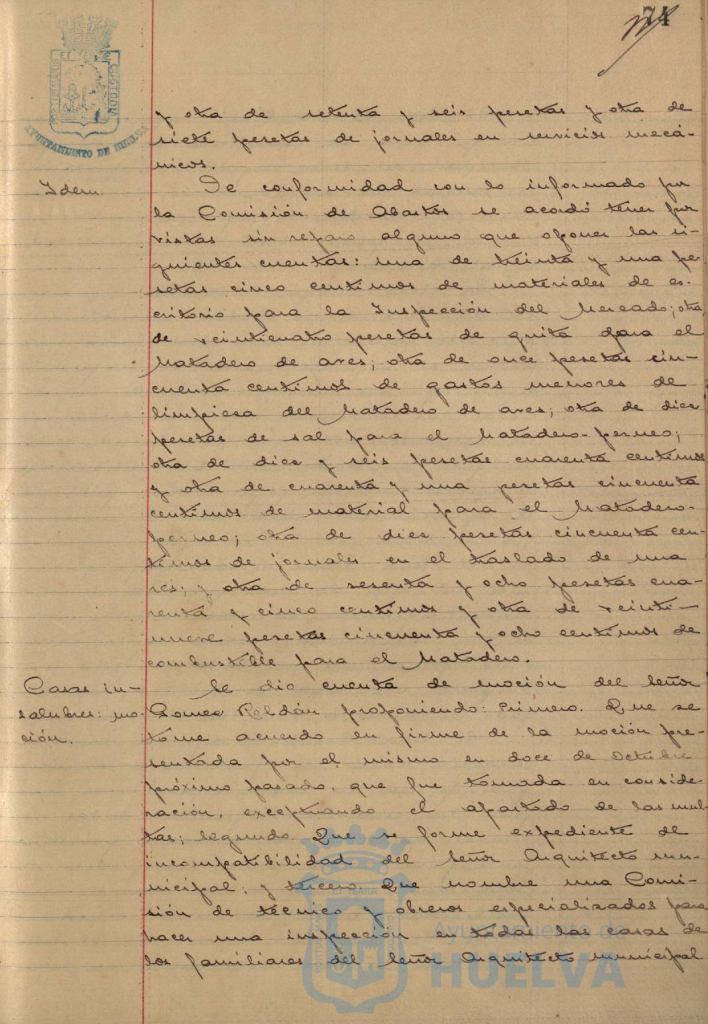 74
AYUNTAMIENTO DE HUELVA
y otra de setenta y seis pesetas y otra de
siete pesetas de jornales en servicios mecá-
nicos.
Idem.
De conformidad con lo informado por
la Comisión de Abastos se acordó tener por
vistas sin reparo alguno que oponer las si-
guientes cuentas: una de treinta y una pe-
setas cinco centimos de materiales de es-
critorio para la Inspección del Mercado; otra
de veinticuatro pesetas de guita para el
Matadero de aves; otra de once pesetas cin-
cuenta centimos de gastos menores de
limpiesa del Matadero de aves; otra de dies
pesetas de sal para el Matadero-perneo;
otra de dies y seis pesetas cuarenta centimos
y otra de cuarenta y una pesetas cincuenta
centimos de material para el Matadero-
perneo; otra de dies pesetas cincuenta cen-
timos de jornales en el traslado de una
res; y otra de sesenta y ocho pesetas cua-
renta y cinco centimos y otra de veinti-
nueve pesetas cincuenta y ocho centimos de
combustible para el Matadero.
Casas in-
salubres: mo-
ción.
Se dio cuenta de moción del Señor
Gomes Roldán proponiendo: Primero. Que se
tome acuerdo en firme de la moción pre-
sentada por el mismo en doce de Octubre
próximo pasado, que fue tomada en conside-
ración, exceptuando el apartado de las mul-
tas; Segundo. Que se forme expediente de
incompatibilidad del Señor Arquitecto mu-
nicipal; y tercero. Que nombre una Comi-
sión de técnico y obreros especializados para
hacer una inspección en todas las casas de
los familiares del Señor Arquitecto municipal
Ayuntamiento de
HUELVA